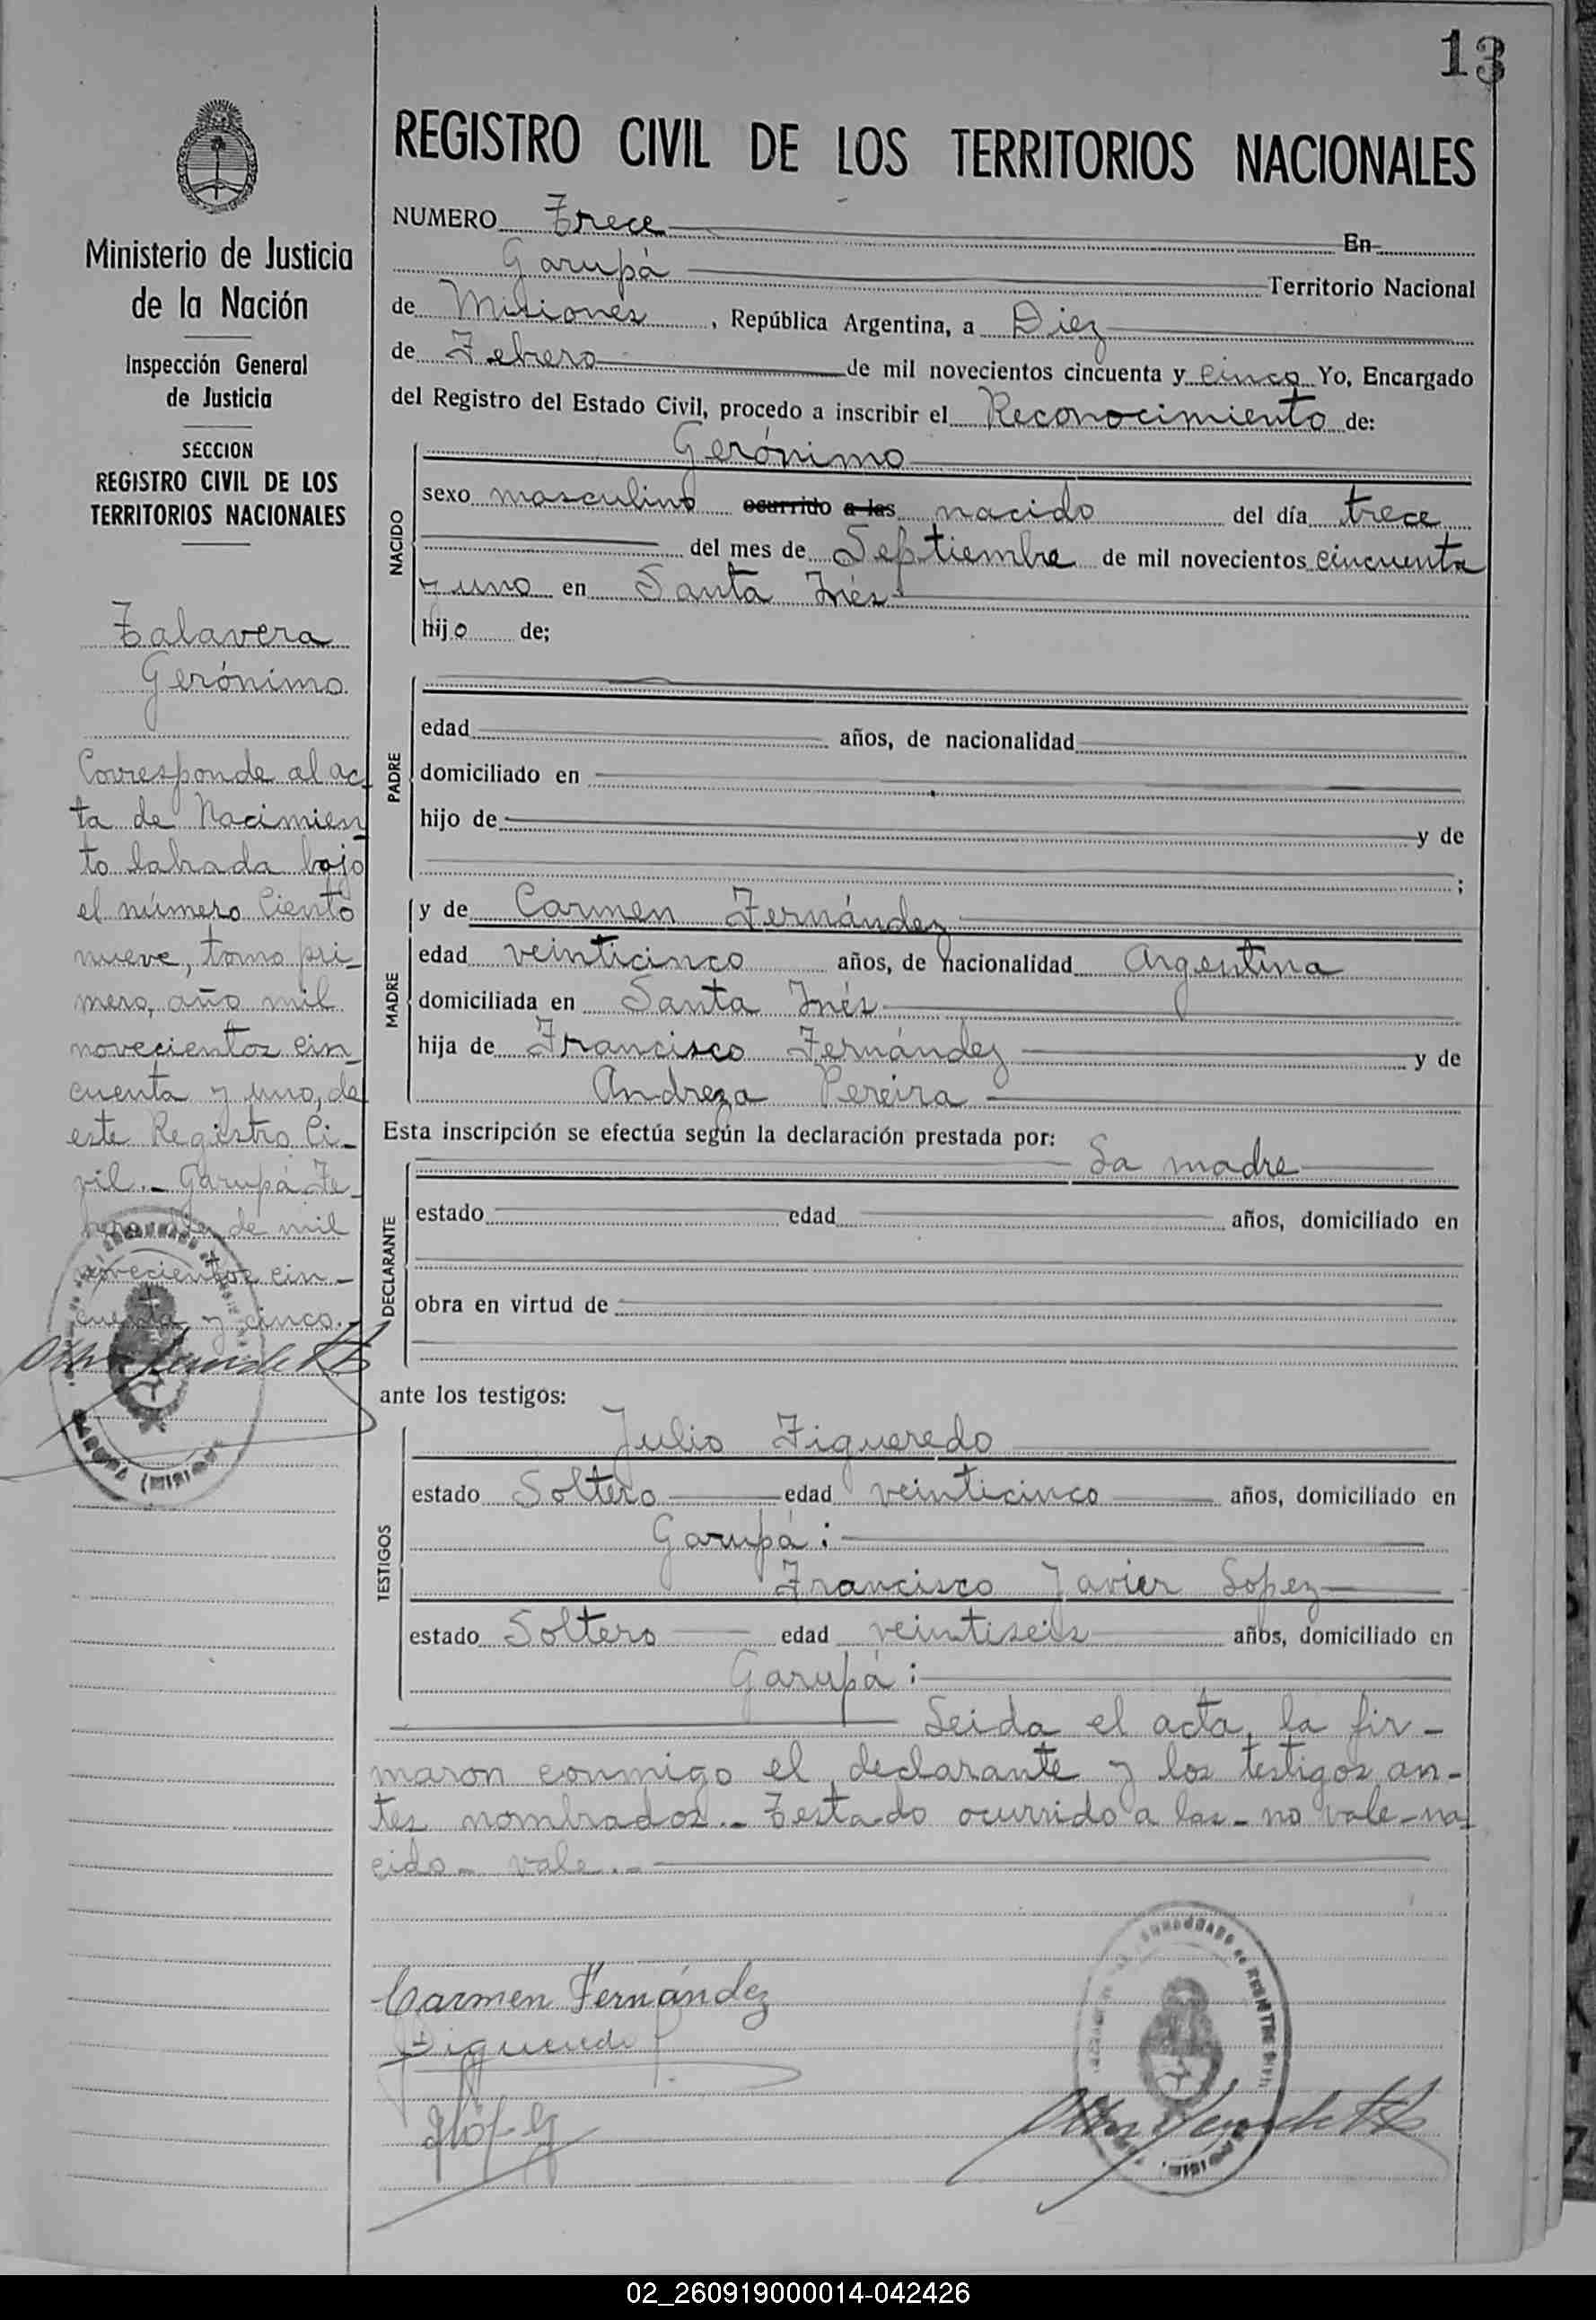 13
REGISTRO CIVIL DE LOS TERRITORIOS NACIONALES
Ministerio de Justicia
de la Nación
Inspección General
de Justicia
SECCION
REGISTRO CIVIL DE LOS
TERRITORIOS NACIONALES
Talavera
Gerónimo
Corresponde al ac-
ta de Nacimien
to labrada bajo
el número Ciento
nueve, tomo pri-
mero, año mil
novecientos cin-
cuenta y uno, de
este Registro Ci-
vil.- Garupá Fe-
brero diez de mil
novecientos cin-
cuenta y cinco.-
NUMERO Trece En
Garupá Territorio Nacional
de Misiones, República Argentina, a Diez
de Febrero de mil novecientos cincuenta y cinco Yo, Encargado
del Registro del Estado Civil, procedo a inscribir el Reconocimiento de:
NACIDO
Gerónimo
sexo masculino ocurrido a las nacido del día trece
del mes de Septiembre de mil novecientos cincuenta
y uno en Santa Inés
hijo de;
PADRE
edad años, de nacionalidad
domiciliado en
hijo de y de
;
MADRE
y de Carmen Fernández
edad veinticinco años, de nacionalidad Argentina
domiciliada en Santa Inés
hija de Francisco Fernández y de
Andreza Pereira
Esta inscripción se efectúa según la declaración prestada por:
La madre
DECLARANTE
estado edad años, domiciliado en
obra en virtud de
ante los testigos:
TESTIGOS
Julio Figueredo
estado Soltero edad veinticinco años, domiciliado en
Garupá:
Francisco Javier Lopez
estado Soltero edad veintiseis años, domiciliado en
Garupá:
Leida el acta, la fir-
maron conmigo el declarante y los testigos an-
tes nombrados.- Testado ocurrido a las- no vale- na-
cido- vale.-
Carmen Fernández
Figueredo
02_260919000014-042426